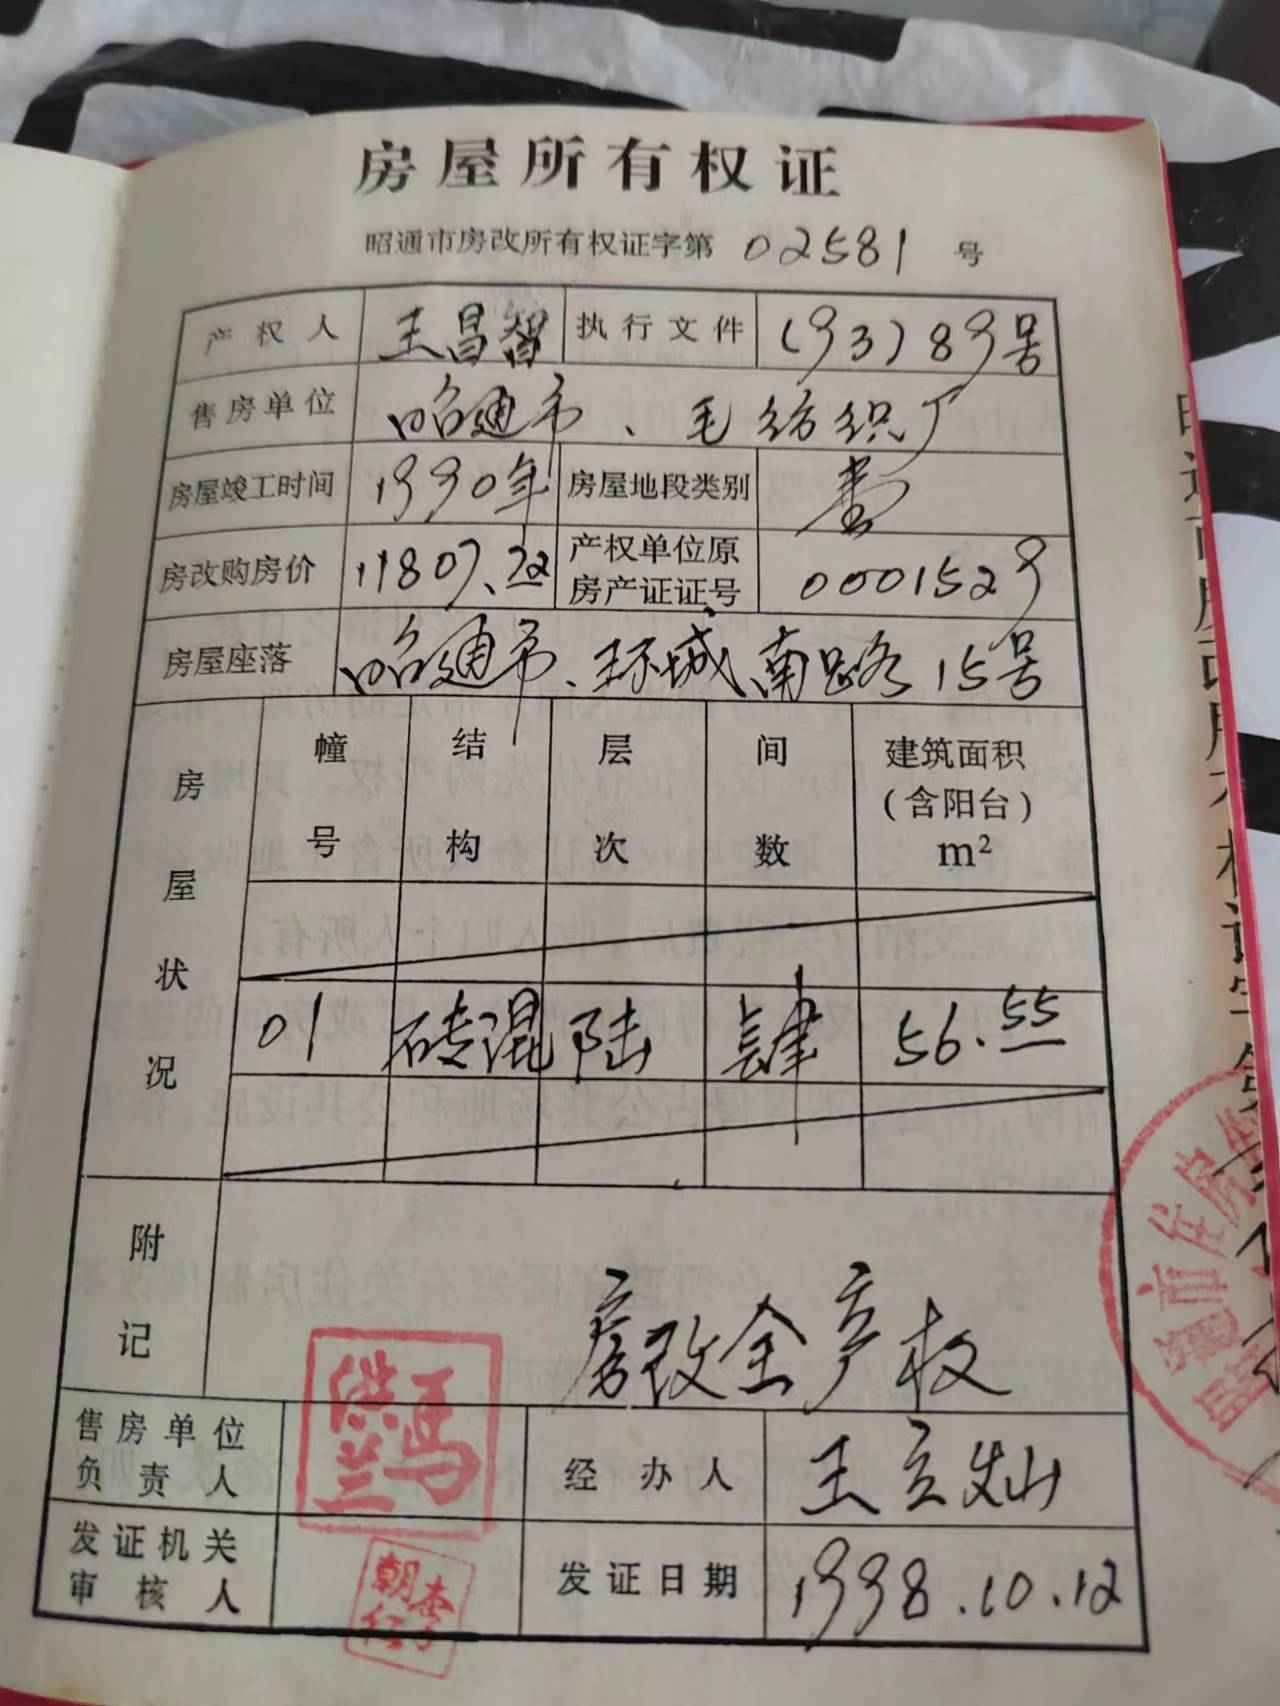 房屋所有权证
昭通市房改所有权证字第 02581 号
产权人 王昌智 执行文件 (93)89号
售房单位 昭通市、毛纺织厂
房屋竣工时间 1990年 房屋地段类别
房改购房价 11807.22 产权单位原房产证证号 0001529
房屋座落 昭通市、环城南路15号
房屋状况 幢号 结构 层次 间数 建筑面积(含阳台)m²
01 砖混 陆 肆 56.55
附记 房改全产权
售房单位负责人 马洪兰 经办人 王立灿
发证机关审核人 李朝红 发证日期 1998.10.12